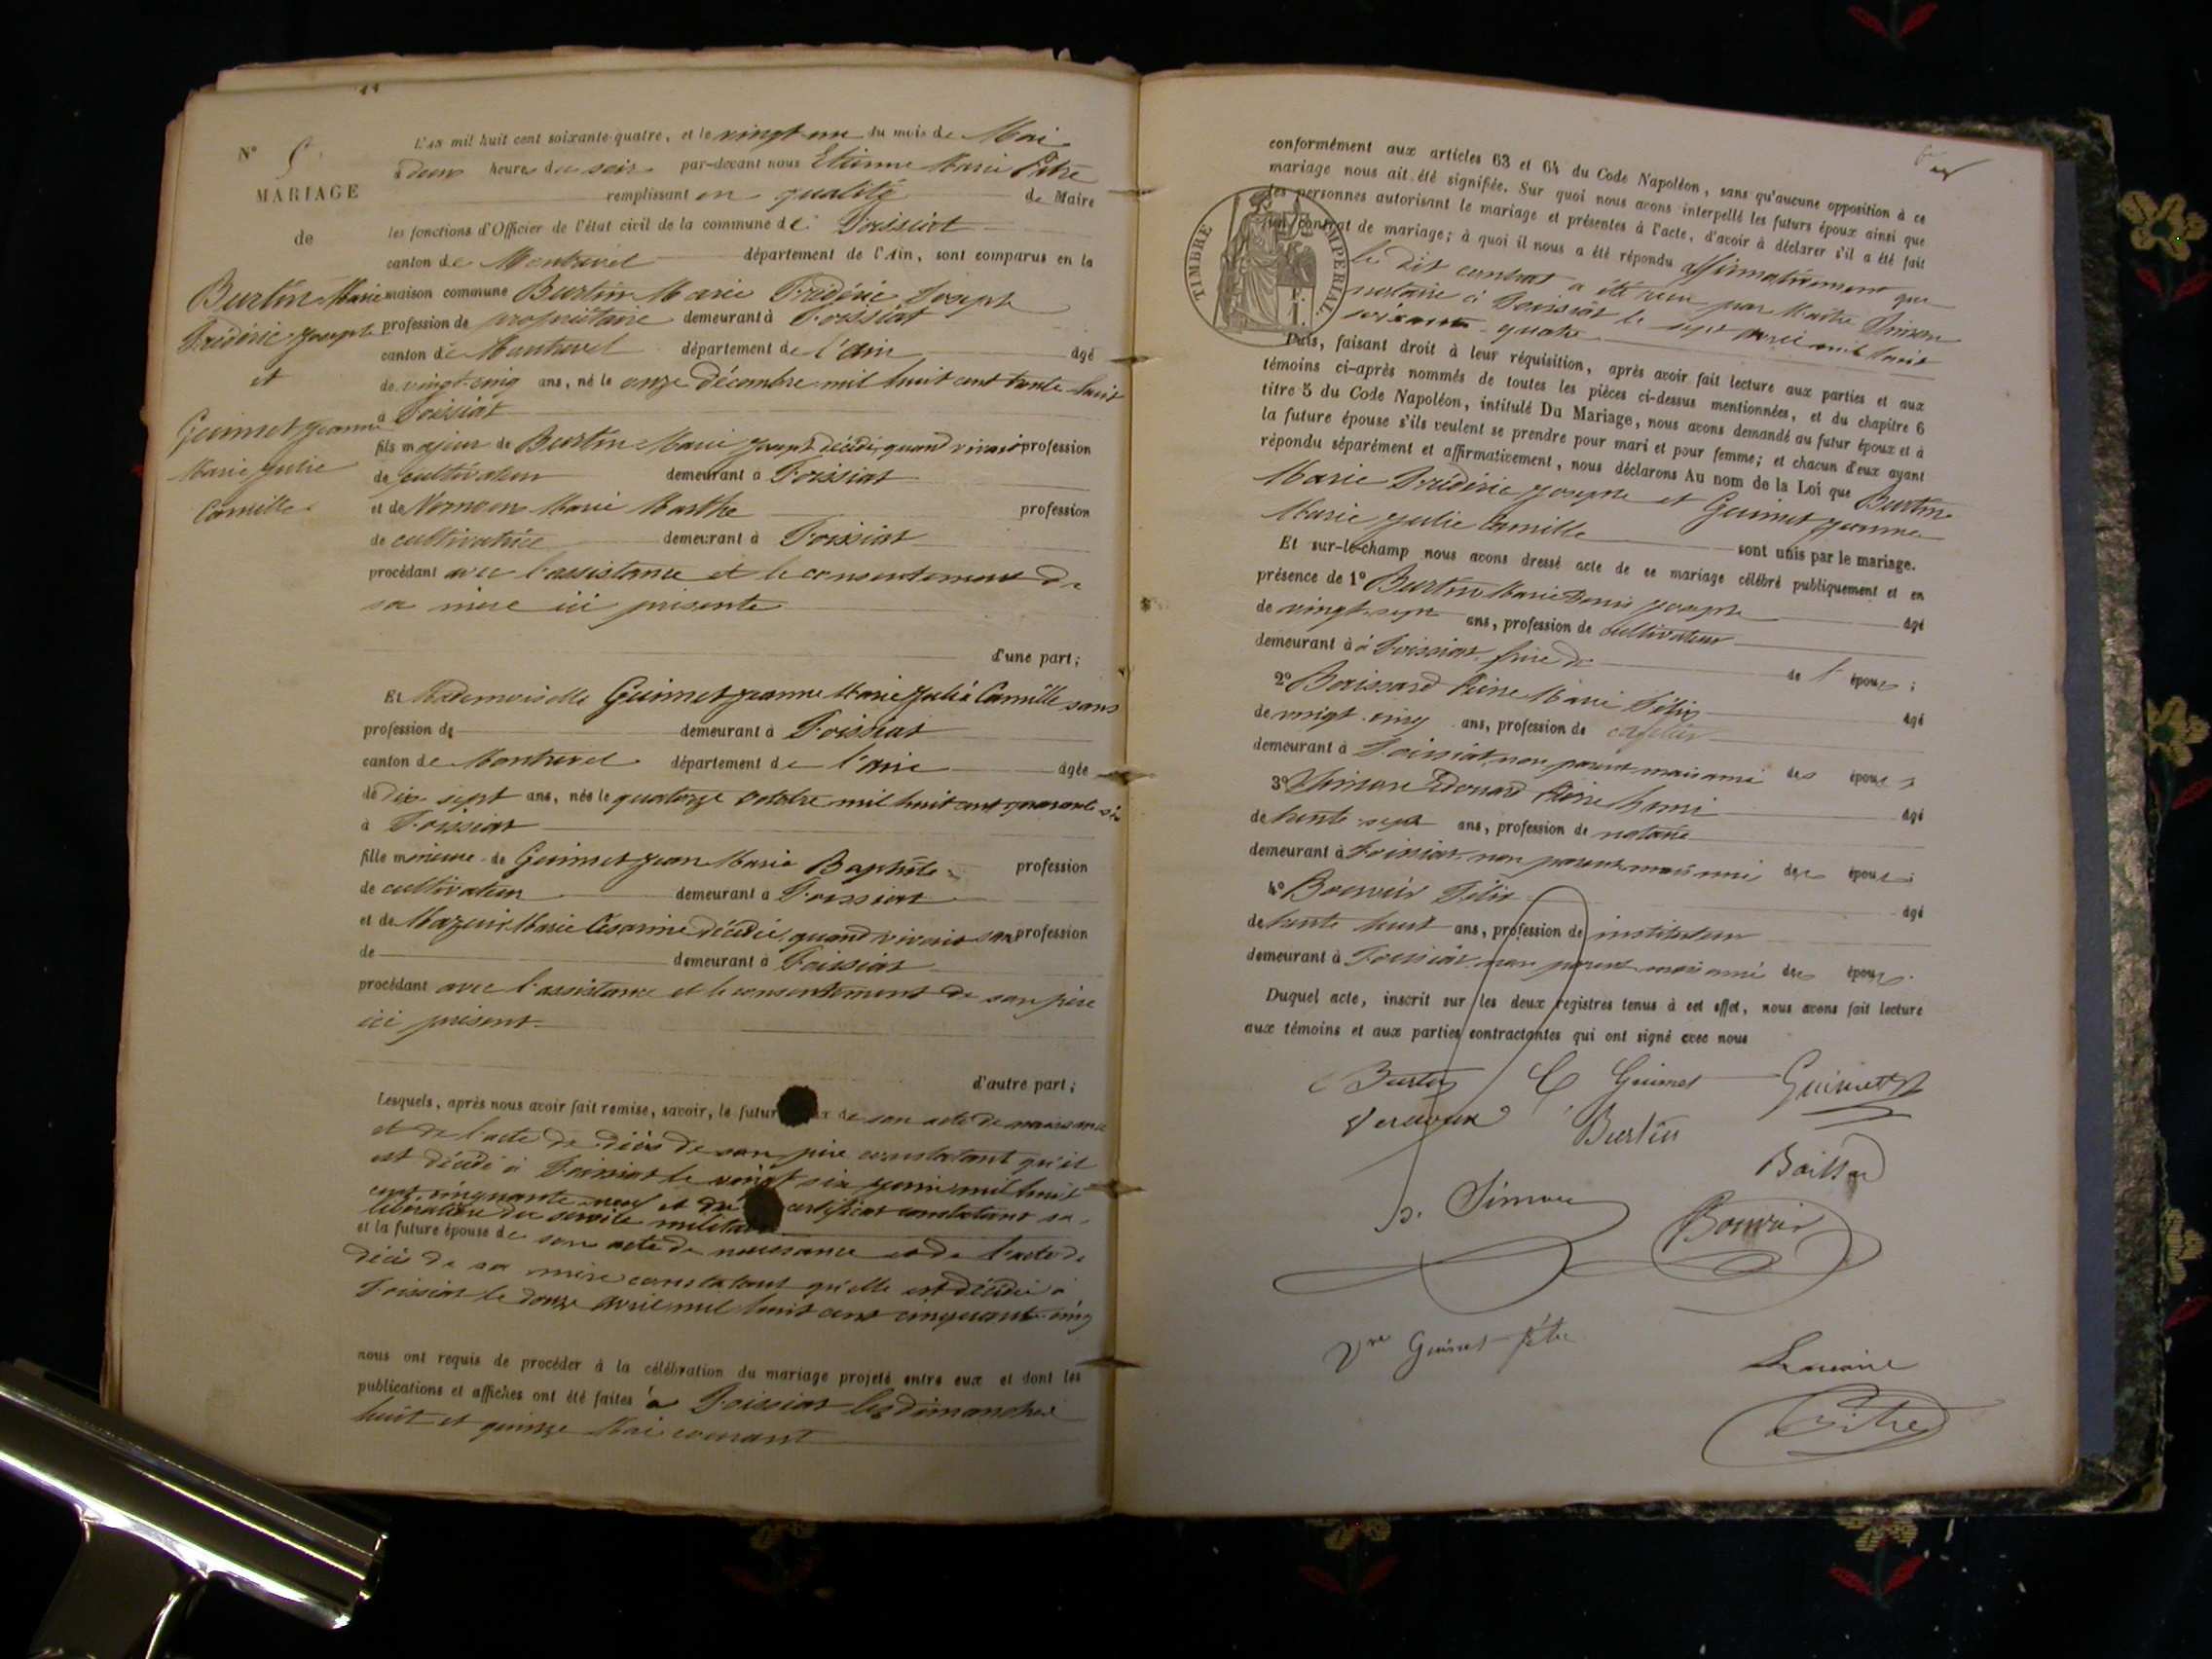 N° 5
MARIAGE
de
Burtin Marie
Frédéric Joseph
et
Guimet Jeanne
Marie Julie
Camille
L'an mil huit cent soixante-quatre, et le vingt un du mois de Mai
à deux heures du soir par-devant nous Etienne Marie Pitre
remplissant en qualité de Maire
les fonctions d'Officier de l'état civil de la commune de Foissiat
canton de Montrevel département de l'Ain, sont comparus en la
maison commune Burtin Marie Frédéric Joseph
profession de propriétaire demeurant à Foissiat
canton de Montrevel département de l'ain âgé
de vingt-cinq ans, né le onze décembre mil huit cent trente huit
à Foissiat
fils majeur de Burtin Marie Joseph décédé, quand vivait profession
de cultivateur demeurant à Foissiat
et de Marie Marthe profession
de cultivatrice demeurant à Foissiat
procédant avec l'assistance et le consentement de
sa mère ici présente
d'une part;
Et Mademoiselle Guimet Jeanne Marie Julie Camille sans
profession de demeurant à Foissiat
canton de Montrevel département de l'ain âgée
de dix sept ans, née le quatorze octobre mil huit cent quarante six
à Foissiat
fille mineure de Guimet Jean Marie Baptiste profession
de cultivateur demeurant à Foissiat
et de Mazuir Marie Césarine décédée, quand vivait sans profession
de demeurant à Foissiat
procédant avec l'assistance et le consentement de son père
ici présent
d'autre part;
Lesquels, après nous avoir fait remise, savoir, le futur de son acte de naissance
et de l'acte de décès de son père constatant qu'il
est décédé à Foissiat le vingt six mil huit
cent cinquante neuf et du certificat constatant sa
libération du service militaire
et la future épouse de son acte de naissance et de l'acte de
décès de sa mère constatant qu'elle est décédée à
Foissiat le douze avril mil huit cent cinquante-cinq
nous ont requis de procéder à la célébration du mariage projeté entre eux et dont les
publications et affiches ont été faites à Foissiat les dimanches
huit et quinze Mai courant
conformément aux articles 63 et 64 du Code Napoléon, sans qu'aucune opposition à ce
mariage nous ait été signifiée. Sur quoi nous avons interpellé les futurs époux ainsi que
les personnes autorisant le mariage et présentes à l'acte, d'avoir à déclarer s'il a été fait
un contrat de mariage; à quoi il nous a été répondu affirmativement que
TIMBRE IMPERIAL
le dit contrat a été reçu par Maître Simon
notaire à Foissiat le sept avril mil huit
soixante-quatre
Puis, faisant droit à leur réquisition, après avoir fait lecture aux parties et aux
témoins ci-après nommés de toutes les pièces ci-dessus mentionnées, et du chapitre 6
titre 5 du Code Napoléon, intitulé Du Mariage, nous avons demandé au futur époux et à
la future épouse s'ils veulent se prendre pour mari et pour femme; et chacun d'eux ayant
répondu séparément et affirmativement, nous déclarons Au nom de la Loi que Burtin
Marie Frédéric Joseph et Guimet Jeanne
Marie Julie Camille sont unis par le mariage.
Et sur-le-champ nous avons dressé acte de ce mariage célébré publiquement et en
présence de 1° Burtin Marie Denis Joseph âgé
de vingt-sept ans, profession de cultivateur
demeurant à à Foissiat, frère de de l'époux;
2° Boissard Pierre Marie Félix âgé
de vingt-cinq ans, profession de cafetier
demeurant à Foissiat, non parent mais ami des époux;
3° Simon Edouard Pierre Henri âgé
de trente-sept ans, profession de notaire
demeurant à Foissiat, non parent mais ami des époux;
4° Bouvoir Félix âgé
de trente huit ans, profession de instituteur
demeurant à Foissiat, non parent mais ami des époux.
Duquel acte, inscrit sur les deux registres tenus à cet effet, nous avons fait lecture
aux témoins et aux parties contractantes qui ont signé avec nous
Burtin C Guimet Guimet
Burtin
Boissard
Simon
Bouvoir
Vve Guimet Pitre
Le maire
Pitre